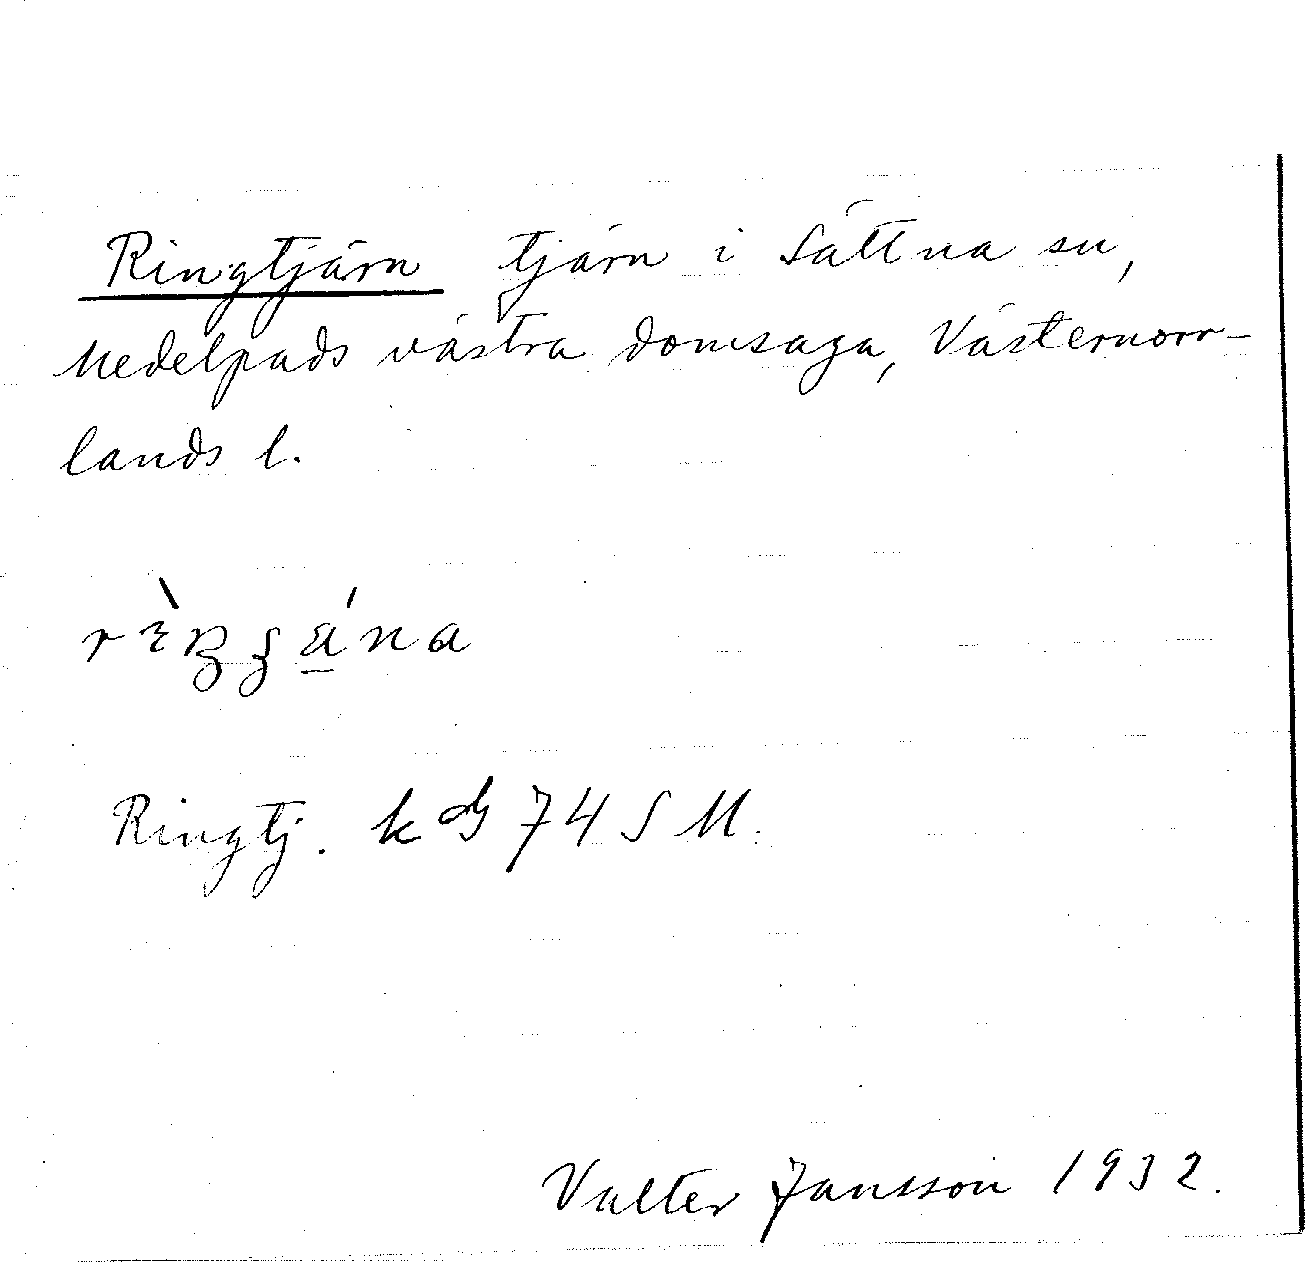 Ringtjärn tjärn i Sättna sn,
Medelpads västra domsaga, Västernorr-
lands l.
Ringtj. k bl 74 S M.
Valter Jansson 1932.